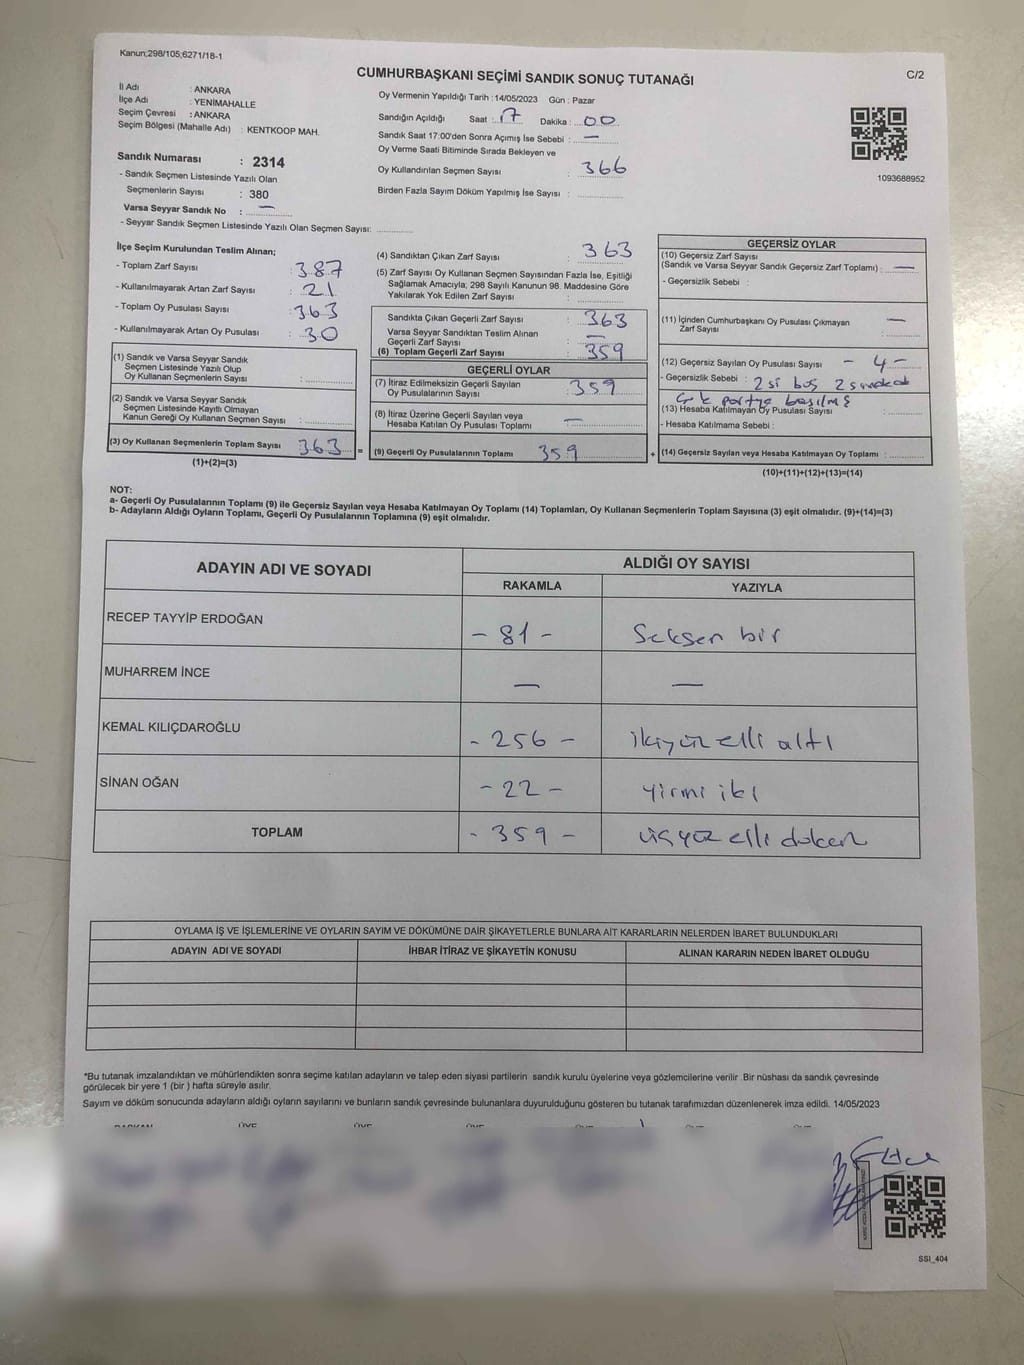 Kanun;298/105;6271/18-1
CUMHURBAŞKANI SEÇİMİ SANDIK SONUÇ TUTANAĞI
C/2
İl Adı : ANKARA
İlçe Adı : YENİMAHALLE
Seçim Çevresi : ANKARA
Seçim Bölgesi (Mahalle Adı) : KENTKOOP MAH.
Sandık Numarası : 2314
- Sandık Seçmen Listesinde Yazılı Olan
Seçmenlerin Sayısı : 380
Varsa Seyyar Sandık No : —
- Seyyar Sandık Seçmen Listesinde Yazılı Olan Seçmen Sayısı:
Oy Vermenin Yapıldığı Tarih : 14/05/2023 Gün : Pazar
Sandığın Açıldığı Saat : 17 Dakika : 00
Sandık Saat 17:00'den Sonra Açımış İse Sebebi : —
Oy Verme Saati Bitiminde Sırada Bekleyen ve
Oy Kullandırılan Seçmen Sayısı : 366
Birden Fazla Sayım Döküm Yapılmış İse Sayısı :
1093688952
İlçe Seçim Kurulundan Teslim Alınan;
- Toplam Zarf Sayısı : 387
- Kullanılmayarak Artan Zarf Sayısı : 21
- Toplam Oy Pusulası Sayısı : 363
- Kullanılmayarak Artan Oy Pusulası : 30
(1) Sandık ve Varsa Seyyar Sandık
Seçmen Listesinde Yazılı Olup
Oy Kullanan Seçmenlerin Sayısı :
(2) Sandık ve Varsa Seyyar Sandık
Seçmen Listesinde Kayıtlı Olmayan
Kanun Gereği Oy Kullanan Seçmen Sayısı :
(3) Oy Kullanan Seçmenlerin Toplam Sayısı 363 =
(1)+(2)=(3)
(4) Sandıktan Çıkan Zarf Sayısı : 363
(5) Zarf Sayısı Oy Kullanan Seçmen Sayısından Fazla İse, Eşitliği
Sağlamak Amacıyla, 298 Sayılı Kanunun 98. Maddesine Göre
Yakılarak Yok Edilen Zarf Sayısı :
Sandıkta Çıkan Geçerli Zarf Sayısı : 363
Varsa Seyyar Sandıktan Teslim Alınan
Geçerli Zarf Sayısı : —
(6) Toplam Geçerli Zarf Sayısı : 359
GEÇERLİ OYLAR
(7) İtiraz Edilmeksizin Geçerli Sayılan
Oy Pusulalarının Sayısı : 359
(8) İtiraz Üzerine Geçerli Sayılan veya
Hesaba Katılan Oy Pusulası Toplamı : —
(9) Geçerli Oy Pusulalarının Toplamı 359 +
GEÇERSİZ OYLAR
(10) Geçersiz Zarf Sayısı
(Sandık ve Varsa Seyyar Sandık Geçersiz Zarf Toplamı) : —
- Geçersizlik Sebebi :
(11) İçinden Cumhurbaşkanı Oy Pusulası Çıkmayan
Zarf Sayısı : —
(12) Geçersiz Sayılan Oy Pusulası Sayısı - 4 -
- Geçersizlik Sebebi : 2 si boş 2 sinde
partiye basılmış
(13) Hesaba Katılmayan Oy Pusulası Sayısı :
- Hesaba Katılmama Sebebi :
(14) Geçersiz Sayılan veya Hesaba Katılmayan Oy Toplamı :
(10)+(11)+(12)+(13)=(14)
NOT:
a- Geçerli Oy Pusulalarının Toplamı (9) ile Geçersiz Sayılan veya Hesaba Katılmayan Oy Toplamı (14) Toplamları, Oy Kullanan Seçmenlerin Toplam Sayısına (3) eşit olmalıdır. (9)+(14)=(3)
b- Adayların Aldığı Oyların Toplamı, Geçerli Oy Pusulalarının Toplamına (9) eşit olmalıdır.
ADAYIN ADI VE SOYADI
ALDIĞI OY SAYISI
RAKAMLA YAZIYLA
RECEP TAYYİP ERDOĞAN - 81 - Seksen bir
MUHARREM İNCE — —
KEMAL KILIÇDAROĞLU - 256 - ikiyüz elli altı
SİNAN OĞAN - 22 - yirmi iki
TOPLAM - 359 - üçyüz elli dokuz
OYLAMA İŞ VE İŞLEMLERİNE VE OYLARIN SAYIM VE DÖKÜMÜNE DAİR ŞİKAYETLERLE BUNLARA AİT KARARLARIN NELERDEN İBARET BULUNDUKLARI
ADAYIN ADI VE SOYADI İHBAR İTİRAZ VE ŞİKAYETİN KONUSU ALINAN KARARIN NEDEN İBARET OLDUĞU
*Bu tutanak imzalandıktan ve mühürlendikten sonra seçime katılan adayların ve talep eden siyasi partilerin sandık kurulu üyelerine veya gözlemcilerine verilir .Bir nüshası da sandık çevresinde
görülecek bir yere 1 (bir ) hafta süreyle asılır.
Sayım ve döküm sonucunda adayların aldığı oyların sayılarını ve bunların sandık çevresinde bulunanlara duyurulduğunu gösteren bu tutanak tarafımızdan düzenlenerek imza edildi. 14/05/2023
SSI_404